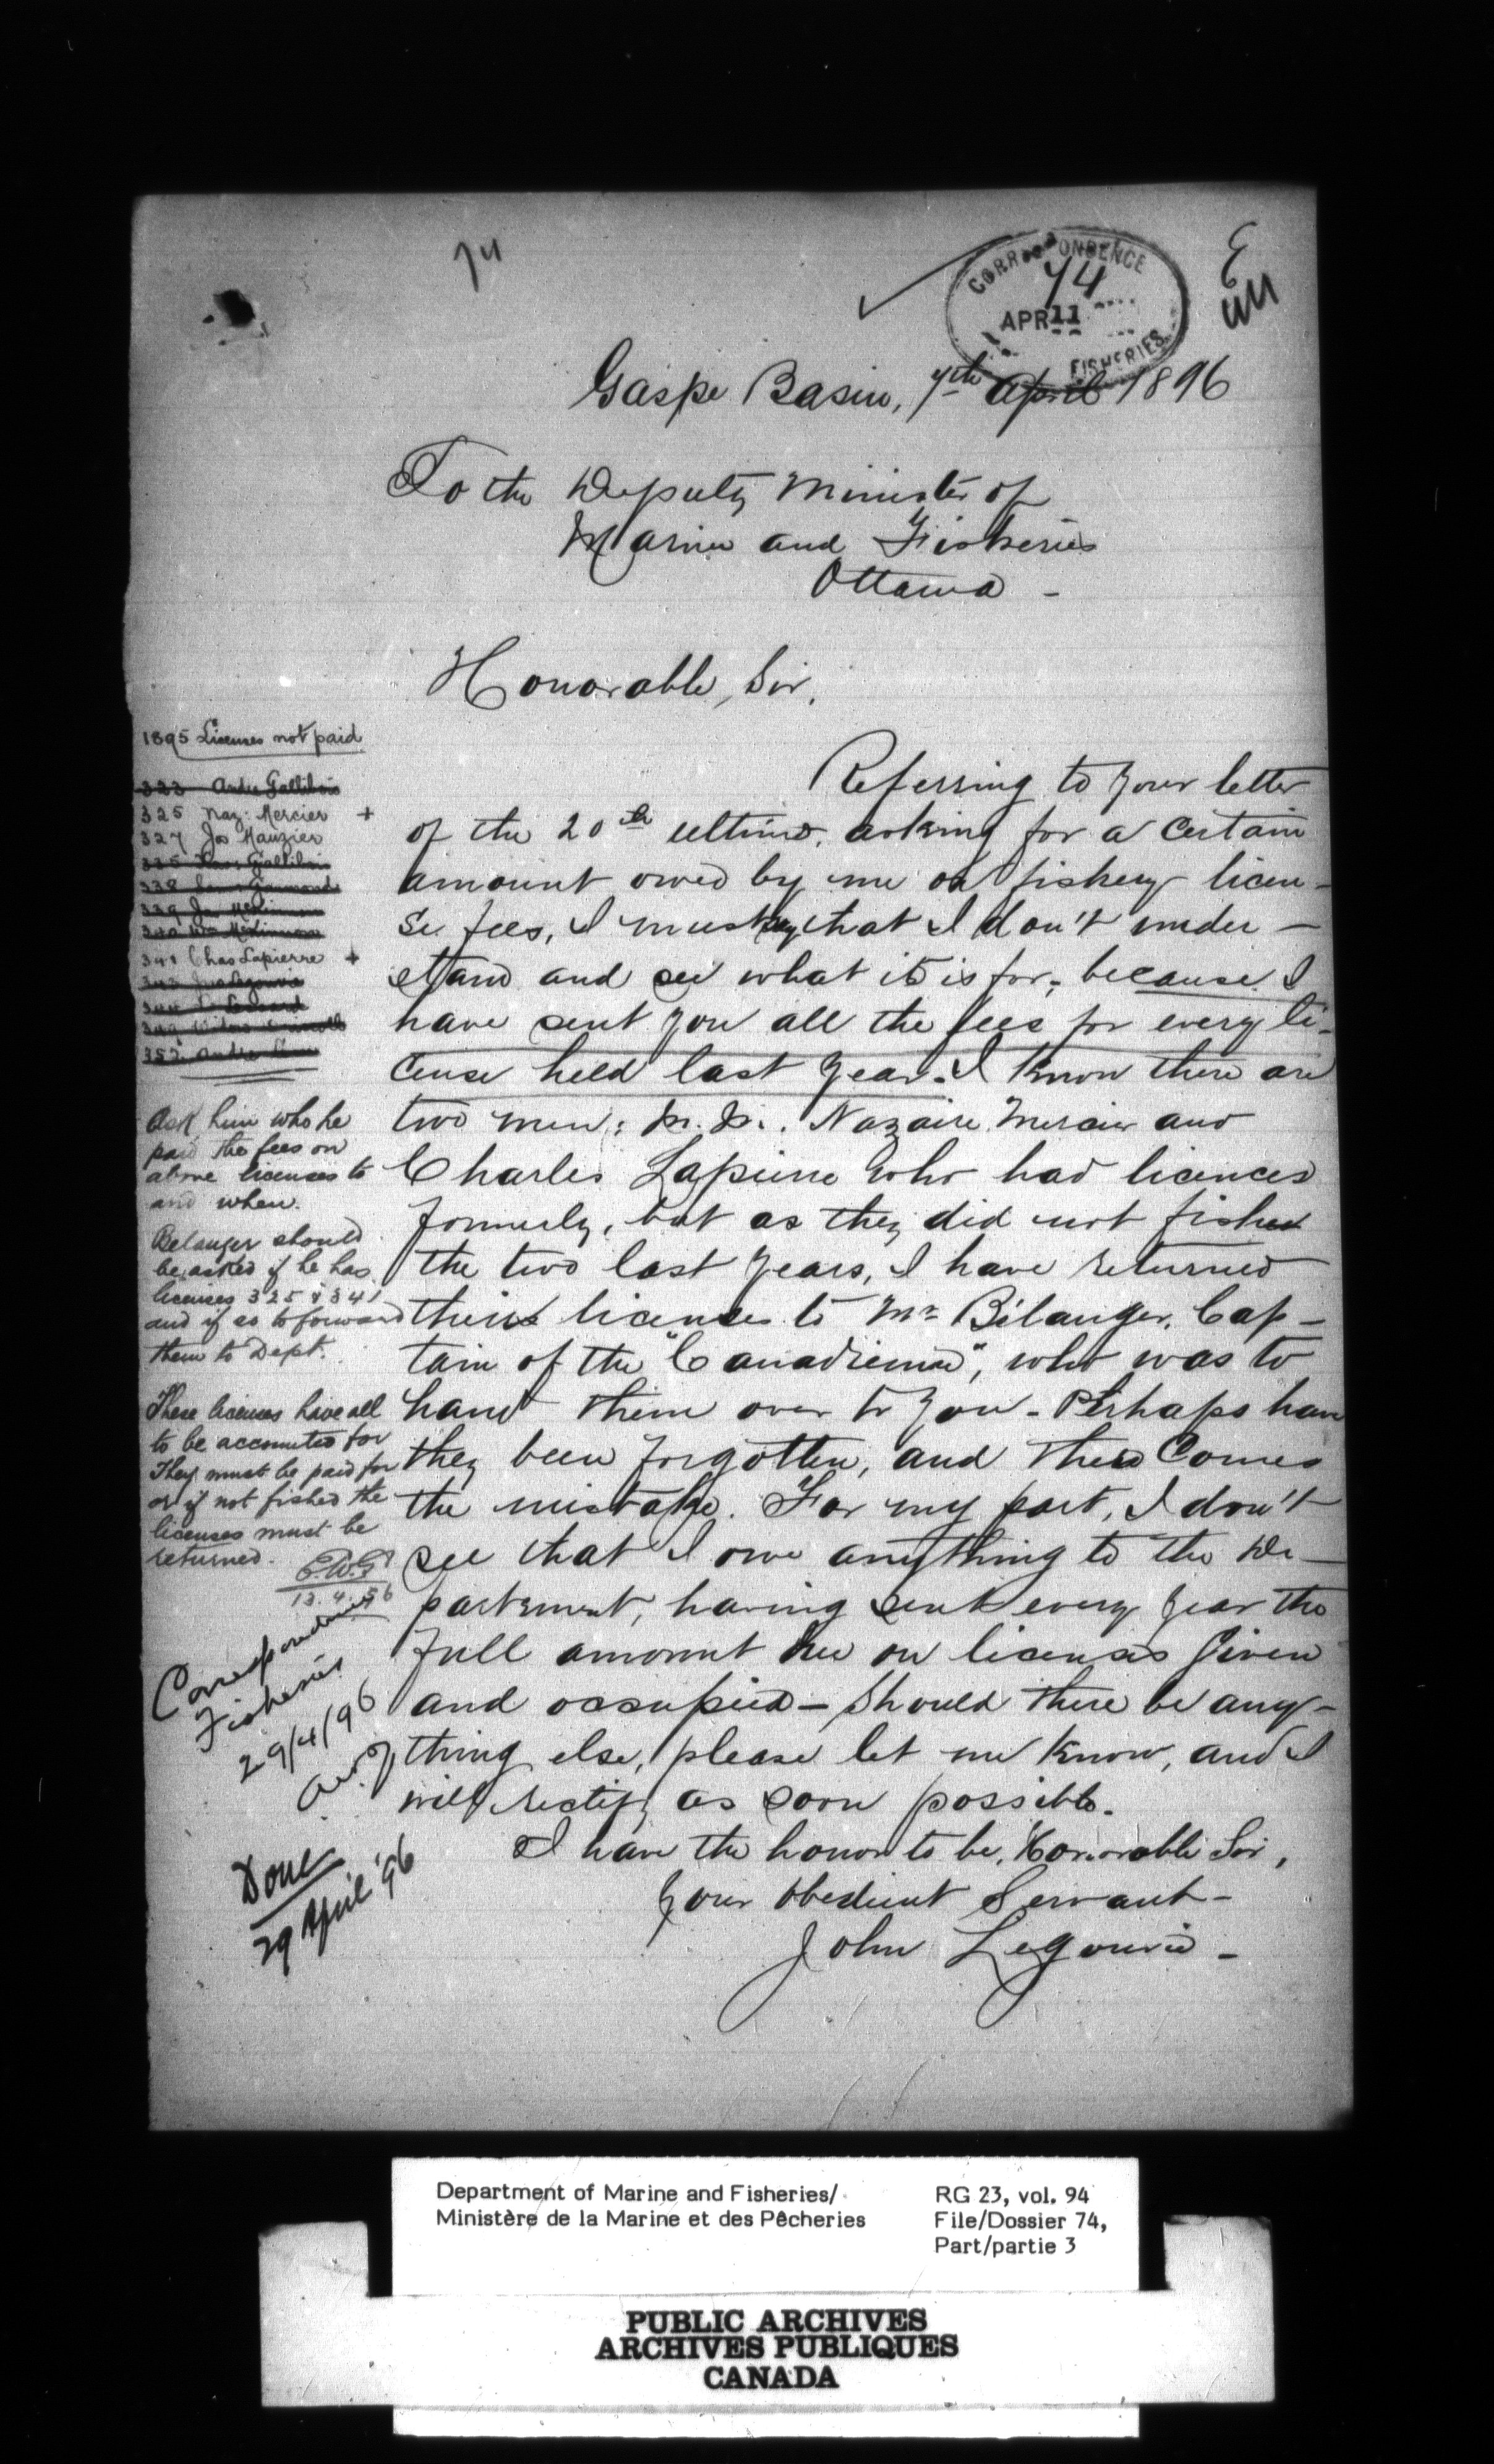 74
CORRESPONDENCE
74
APR 11
FISHERIES
Gaspe Basin, 7th April 1896
To the Deputy Minister of
Marine and Fisheries
Ottawa -
Honorable, Sir,
Referring to your letter
of the 20th ultimo, asking for a certain
amount owed by me on fishery licen-
se fees, I must say that I don't under-
stand and see what it is for, because I
have sent you all the fees for every li-
cense held last year. I know there are
two men: M.M. Nazaire Mercier and
Charles Lapierre who had licences
formerly, but as they did not fished
the two last years, I have returned
their licenses to Mr Bélanger, Cap-
tain of the "Canadienne", who was to
hand them over to you - Perhaps have
they been forgotten, and thus comes
the mistake. For my part, I don't
see that I owe anything to the De-
partment, having sent every year the
full amount due on licenses given
and occupied - Should there be any-
thing else, please let me know, and I
will rectify as soon possible.
I have the honor to be, Honorable Sir,
Your obedient Servant -
John Legouvie -
1895 Licenses not paid
323 Andre Gallibois
325 Naz: Mercier +
327 Jos Mauzier
335 Gallibois
338
339 Jas
340 Wm McKinnon
341 Chas Lapierre +
343
344
349
352 Andre
Ask him who he
paid the fees on
above licenses to
and when.
Belanger should
be asked if he has
licenses 325 & 341
and if so to forward
them to Dept.
These licenses have all
to be accounted for
They must be paid for
or if not fished the
licenses must be
returned.
13.4.96
Correspondence
Fisheries
29/4/96
Done
29 April '96
Department of Marine and Fisheries/
Ministère de la Marine et des Pêcheries
RG 23, vol. 94
File/Dossier 74,
Part/partie 3
PUBLIC ARCHIVES
ARCHIVES PUBLIQUES
CANADA